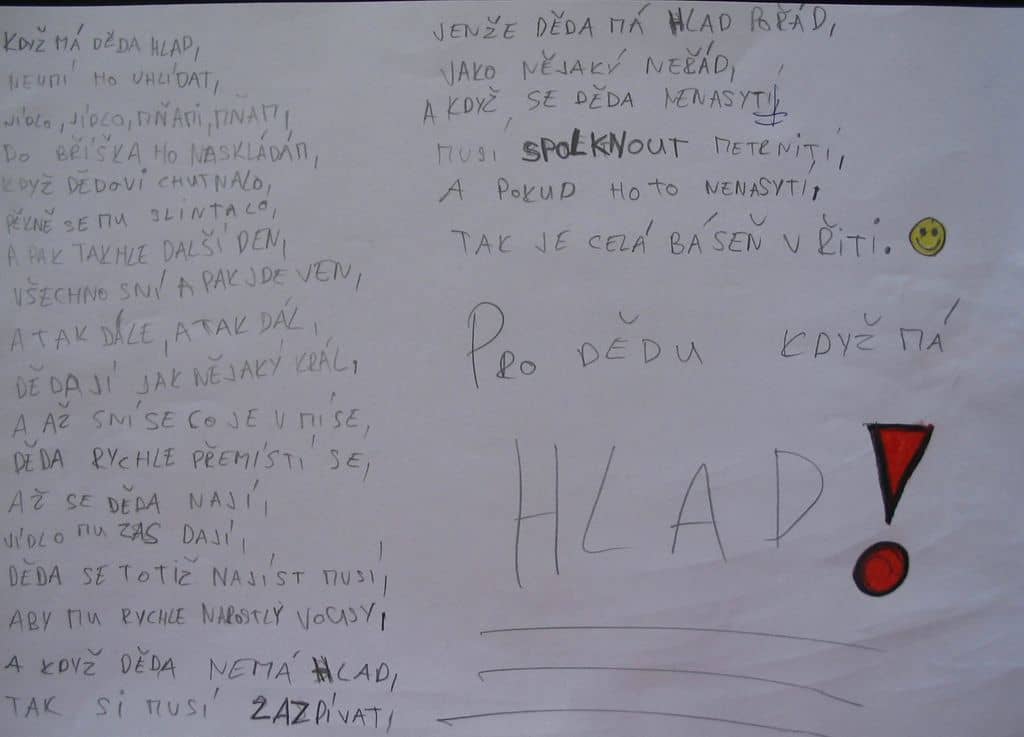 KDYŽ MÁ DĚDA HLAD,
NEUMÍ HO UHLÍDAT,
JÍDLO, JÍDLO, MŇAM, MŇAM,
DO BŘÍŠKA HO NASKLÁDÁM,
KDYŽ DĚDOVI CHUTNALO,
PĚKNĚ SE MU SLINTALO,
A PAK TAKHLE DALŠÍ DEN,
VŠECHNO SNÍ A PAK JDE VEN,
A TAK DÁLE, A TAK DÁL,
DĚDA JÍ JAK NĚJAKÝ KRÁL,
A AŽ SNÍ SE CO JE V MÍSE,
DĚDA RYCHLE PŘEMÍSTÍ SE,
AŽ SE DĚDA NAJÍ,
JÍDLO MU ZAS DAJÍ,
DĚDA SE TOTIŽ NAJÍST MUSÍ,
ABY MU RYCHLE NAROSTLÝ VOUSY,
A KDYŽ DĚDA NEMÁ HLAD,
TAK SI MUSÍ ZAZPÍVAT,
JENŽE DĚDA MÁ HLAD POŘÁD,
JAKO NĚJAKÝ NEŘÁD,
A KDYŽ SE DĚDA NENASYTÍ,
MUSÍ SPOLKNOUT
A POKUD HO TO NENASYTÍ,
TAK JE CELÁ BÁSEŇ V ŘITI.
PRO DĚDU KDYŽ MÁ
HLAD!